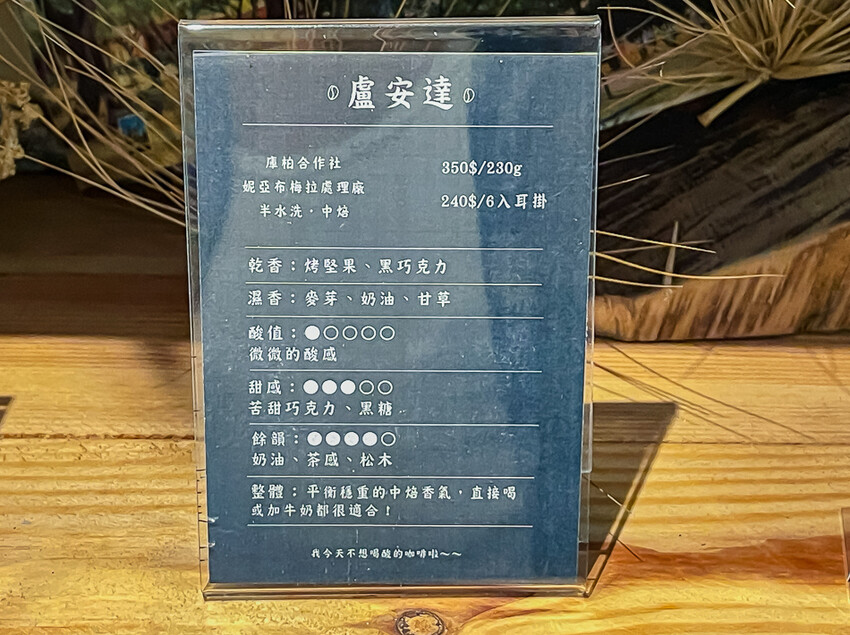 盧安達
庫柏合作社
妮亞布梅拉處理廠
半水洗·中焙
350$/230g
240$/6入耳掛
乾香：烤堅果、黑巧克力
濕香：麥芽、奶油、甘草
酸值：●○○○○
微微的酸感
甜感：●●●○○
苦甜巧克力、黑糖
餘韻：●●●●○
奶油、茶感、松木
整體：平衡穩重的中焙香氣，直接喝
或加牛奶都很適合！
我今天不想喝酸的咖啡啦~~